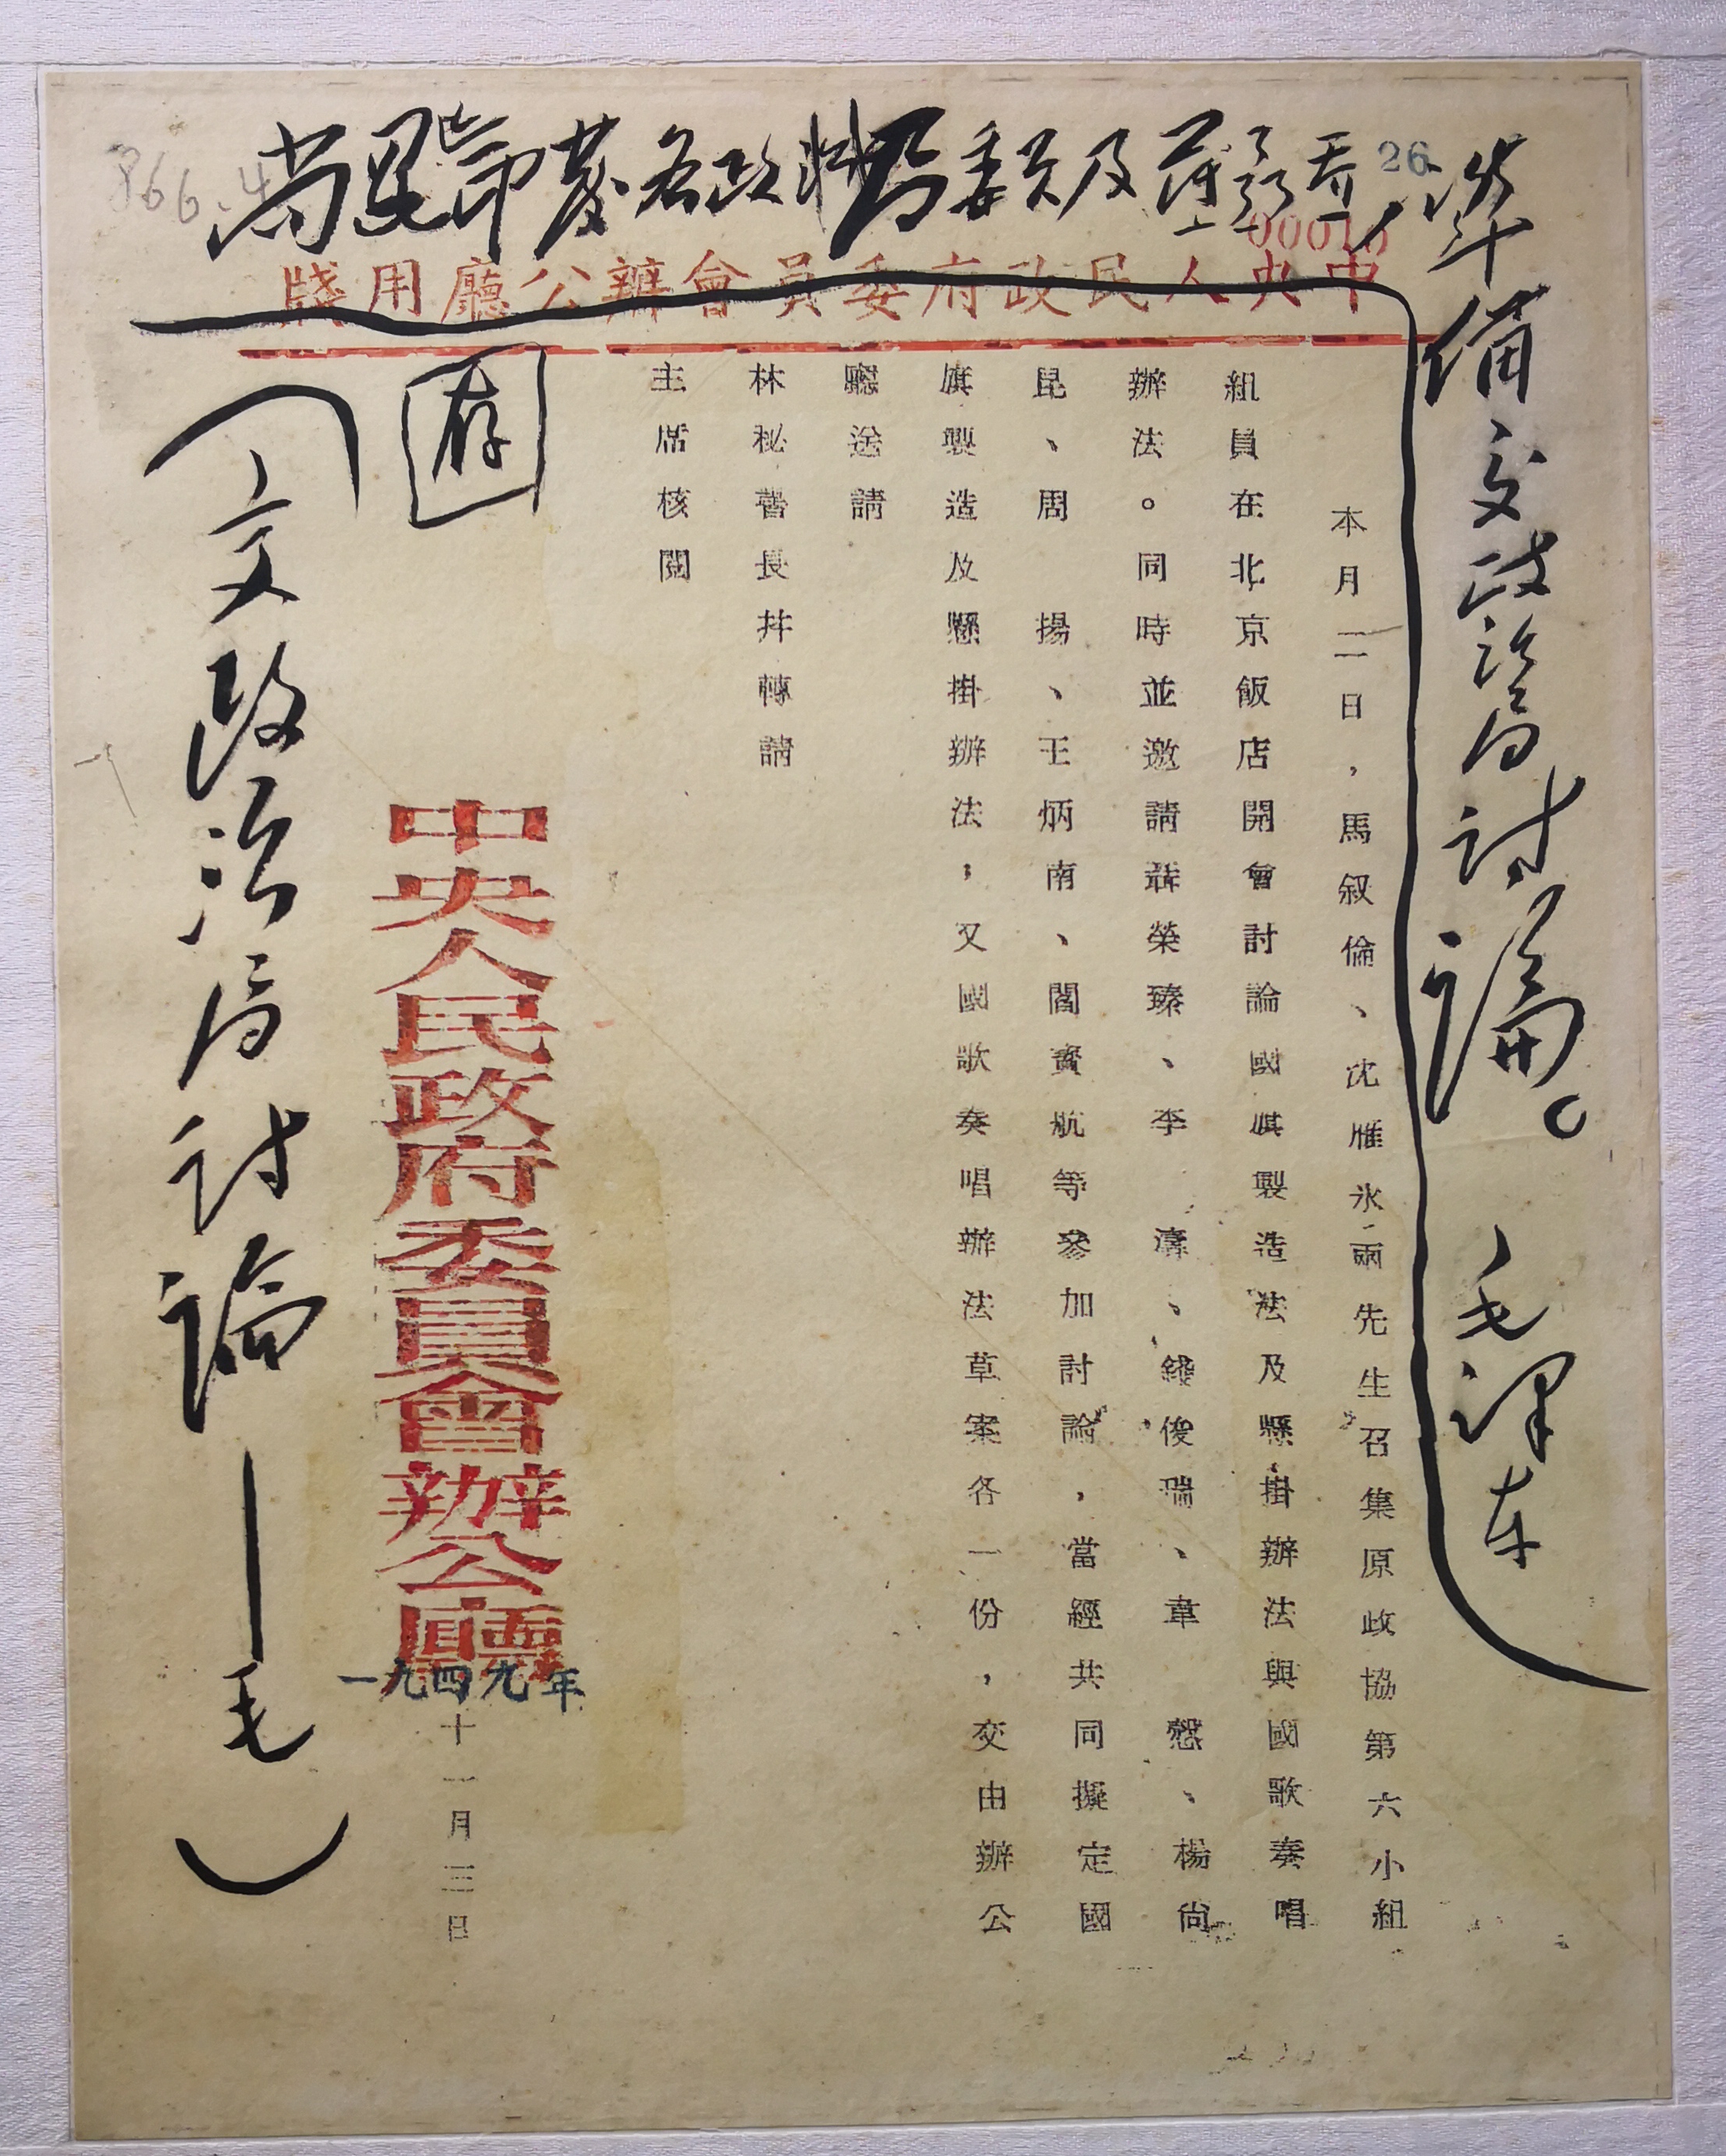 尚昆印發各政治局委員及薄
26
準備交政治局討論。 毛澤东
中央人民政府委員會辦公廳用牋
本月二日，馬叙倫、沈雁氷兩先生召集原政協第六小組
組員在北京飯店開會討論國旗製造法及懸掛辦法與國歌奏唱
辦法。同時並邀請聶榮臻、李 濤、錢俊瑞、韋 慤、楊尚
昆、周 揚、王炳南、閻寳航等參加討論，當經共同擬定國
旗製造及懸掛辦法，又國歌奏唱辦法草案各一份，交由辦公
廳送請
林秘書長并轉請
主席核閱
存
中央人民政府委員會辦公廳
一九四九年
十一月三日
（交政治局討論——毛）